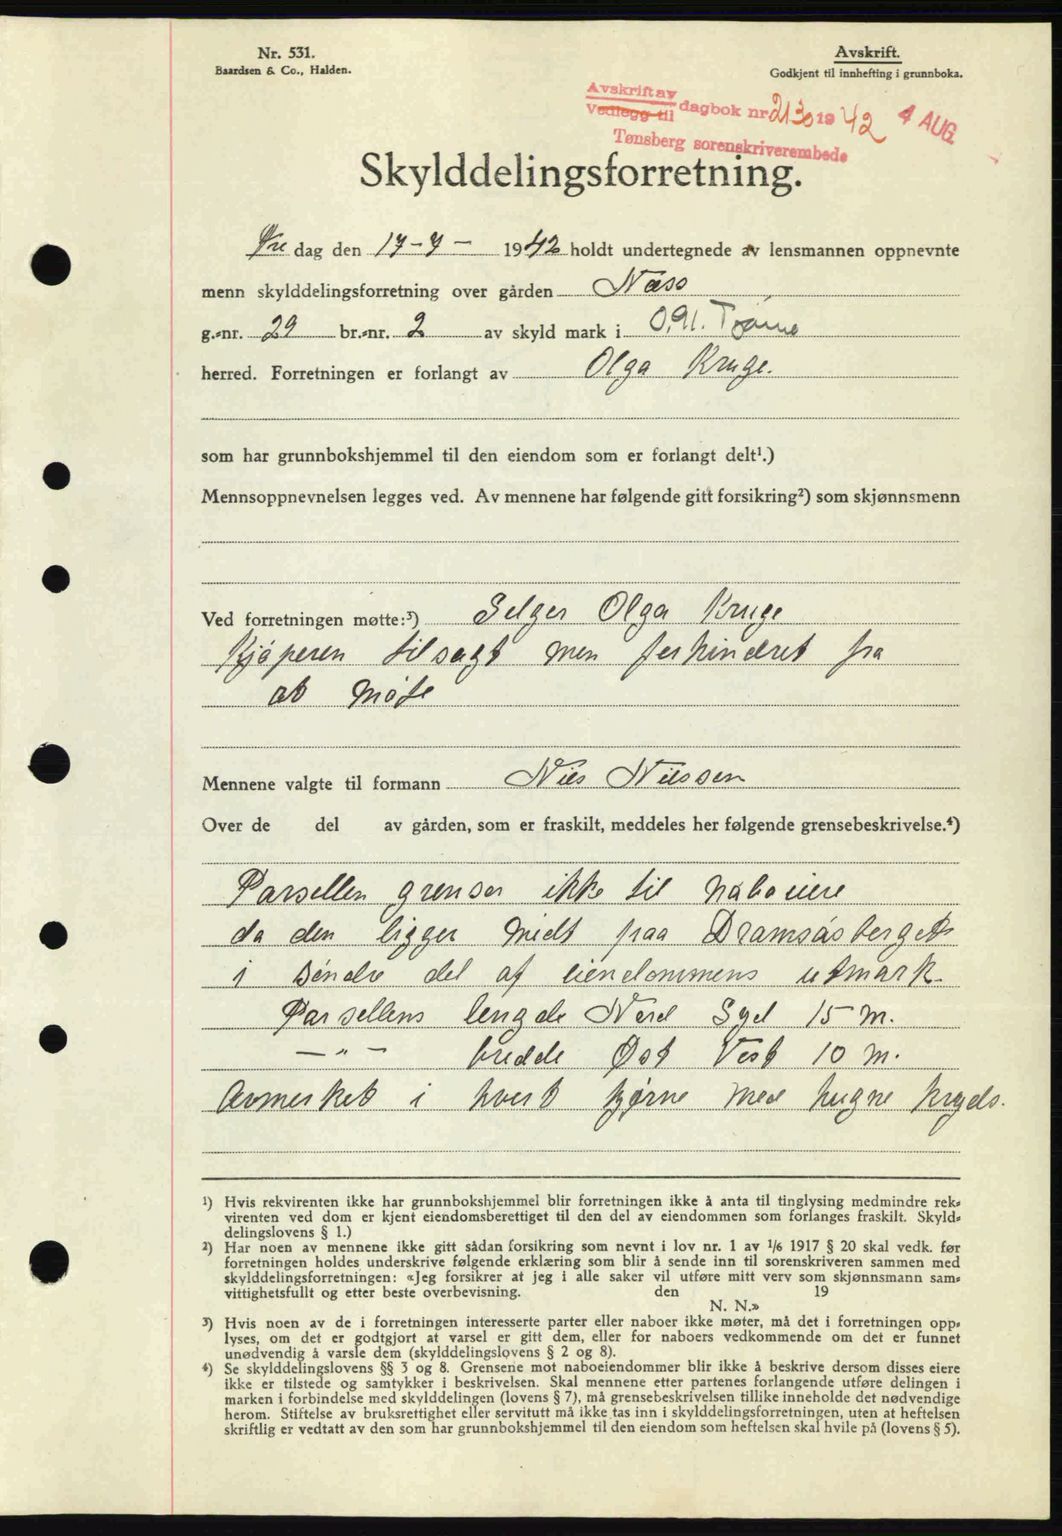 Nr. 531.
Baardsen & Co., Halden.
Avskrift.
Godkjent til innhefting i grunnboka.
Avskrift av
Vedlegg til dagbok nr 2130 19 42 4 AUG.
Tønsberg sorenskriverembede
Skylddelingsforretning.
Fre dag den 17-7- 1942 holdt undertegnede av lensmannen oppnevnte
menn skylddelingsforretning over gården Næss
g.-nr. 29 br.-nr. 2 av skyld mark i 0,91. Tjøme
herred. Forretningen er forlangt av Olga Kruge.
som har grunnbokshjemmel til den eiendom som er forlangt delt¹.)
Mennsoppnevnelsen legges ved. Av mennene har følgende gitt forsikring²) som skjønnsmenn
Ved forretningen møtte:³) Selger Olga Kruge
Kjöperen tilsagt men forhindret fra
at möte
Mennene valgte til formann Nils Nilssen
Over de del av gården, som er fraskilt, meddeles her følgende grensebeskrivelse.⁴)
Parsellen grenser ikke til naboeiere
da den ligger midt paa Dramsåsberget
i söndre del af eiendommens utmark.
Parsellens lengde Nord Syd 15 m.
— " — bredde Øst Vest 10 m.
Avmerket i hvert hjørne med hugne kryds.
¹) Hvis rekvirenten ikke har grunnbokshjemmel blir forretningen ikke å anta til tinglysing medmindre rek-
virenten ved dom er kjent eiendomsberettiget til den del av eiendommen som forlanges fraskilt. Skyld-
delingslovens § 1.)
²) Har noen av mennene ikke gitt sådan forsikring som nevnt i lov nr. 1 av 1/6 1917 § 20 skal vedk. før
forretningen holdes underskrive følgende erklæring som blir å sende inn til sorenskriveren sammen med
skylddelingsforretningen: «Jeg forsikrer at jeg i alle saker vil utføre mitt verv som skjønnsmann sam-
vittighetsfullt og etter beste overbevisning. den 19
N. N.»
³) Hvis noen av de i forretningen interesserte parter eller naboer ikke møter, må det i forretningen opp-
lyses, om det er godtgjort at varsel er gitt dem, eller for naboers vedkommende om det er funnet
unødvendig å varsle dem (skylddelingslovens § 2 og 8).
⁴) Se skylddelingslovens §§ 3 og 8. Grensene mot naboeiendommer blir ikke å beskrive dersom disses eiere
ikke er tilstede og samtykker i beskrivelsen. Skal mennene etter partenes forlangende utføre delingen i
marken i forbindelse med skylddelingen (lovens § 7), må grensebeskrivelsen tillike inneholde det nødvendige
herom. Stiftelse av bruksrettighet eller servitutt må ikke tas inn i skylddelingsforretningen, uten at heftelsen
skriftlig er vedtatt av den som har grunnbokshjemmel til den eiendom som heftelsen skal hvile på (lovens § 5).